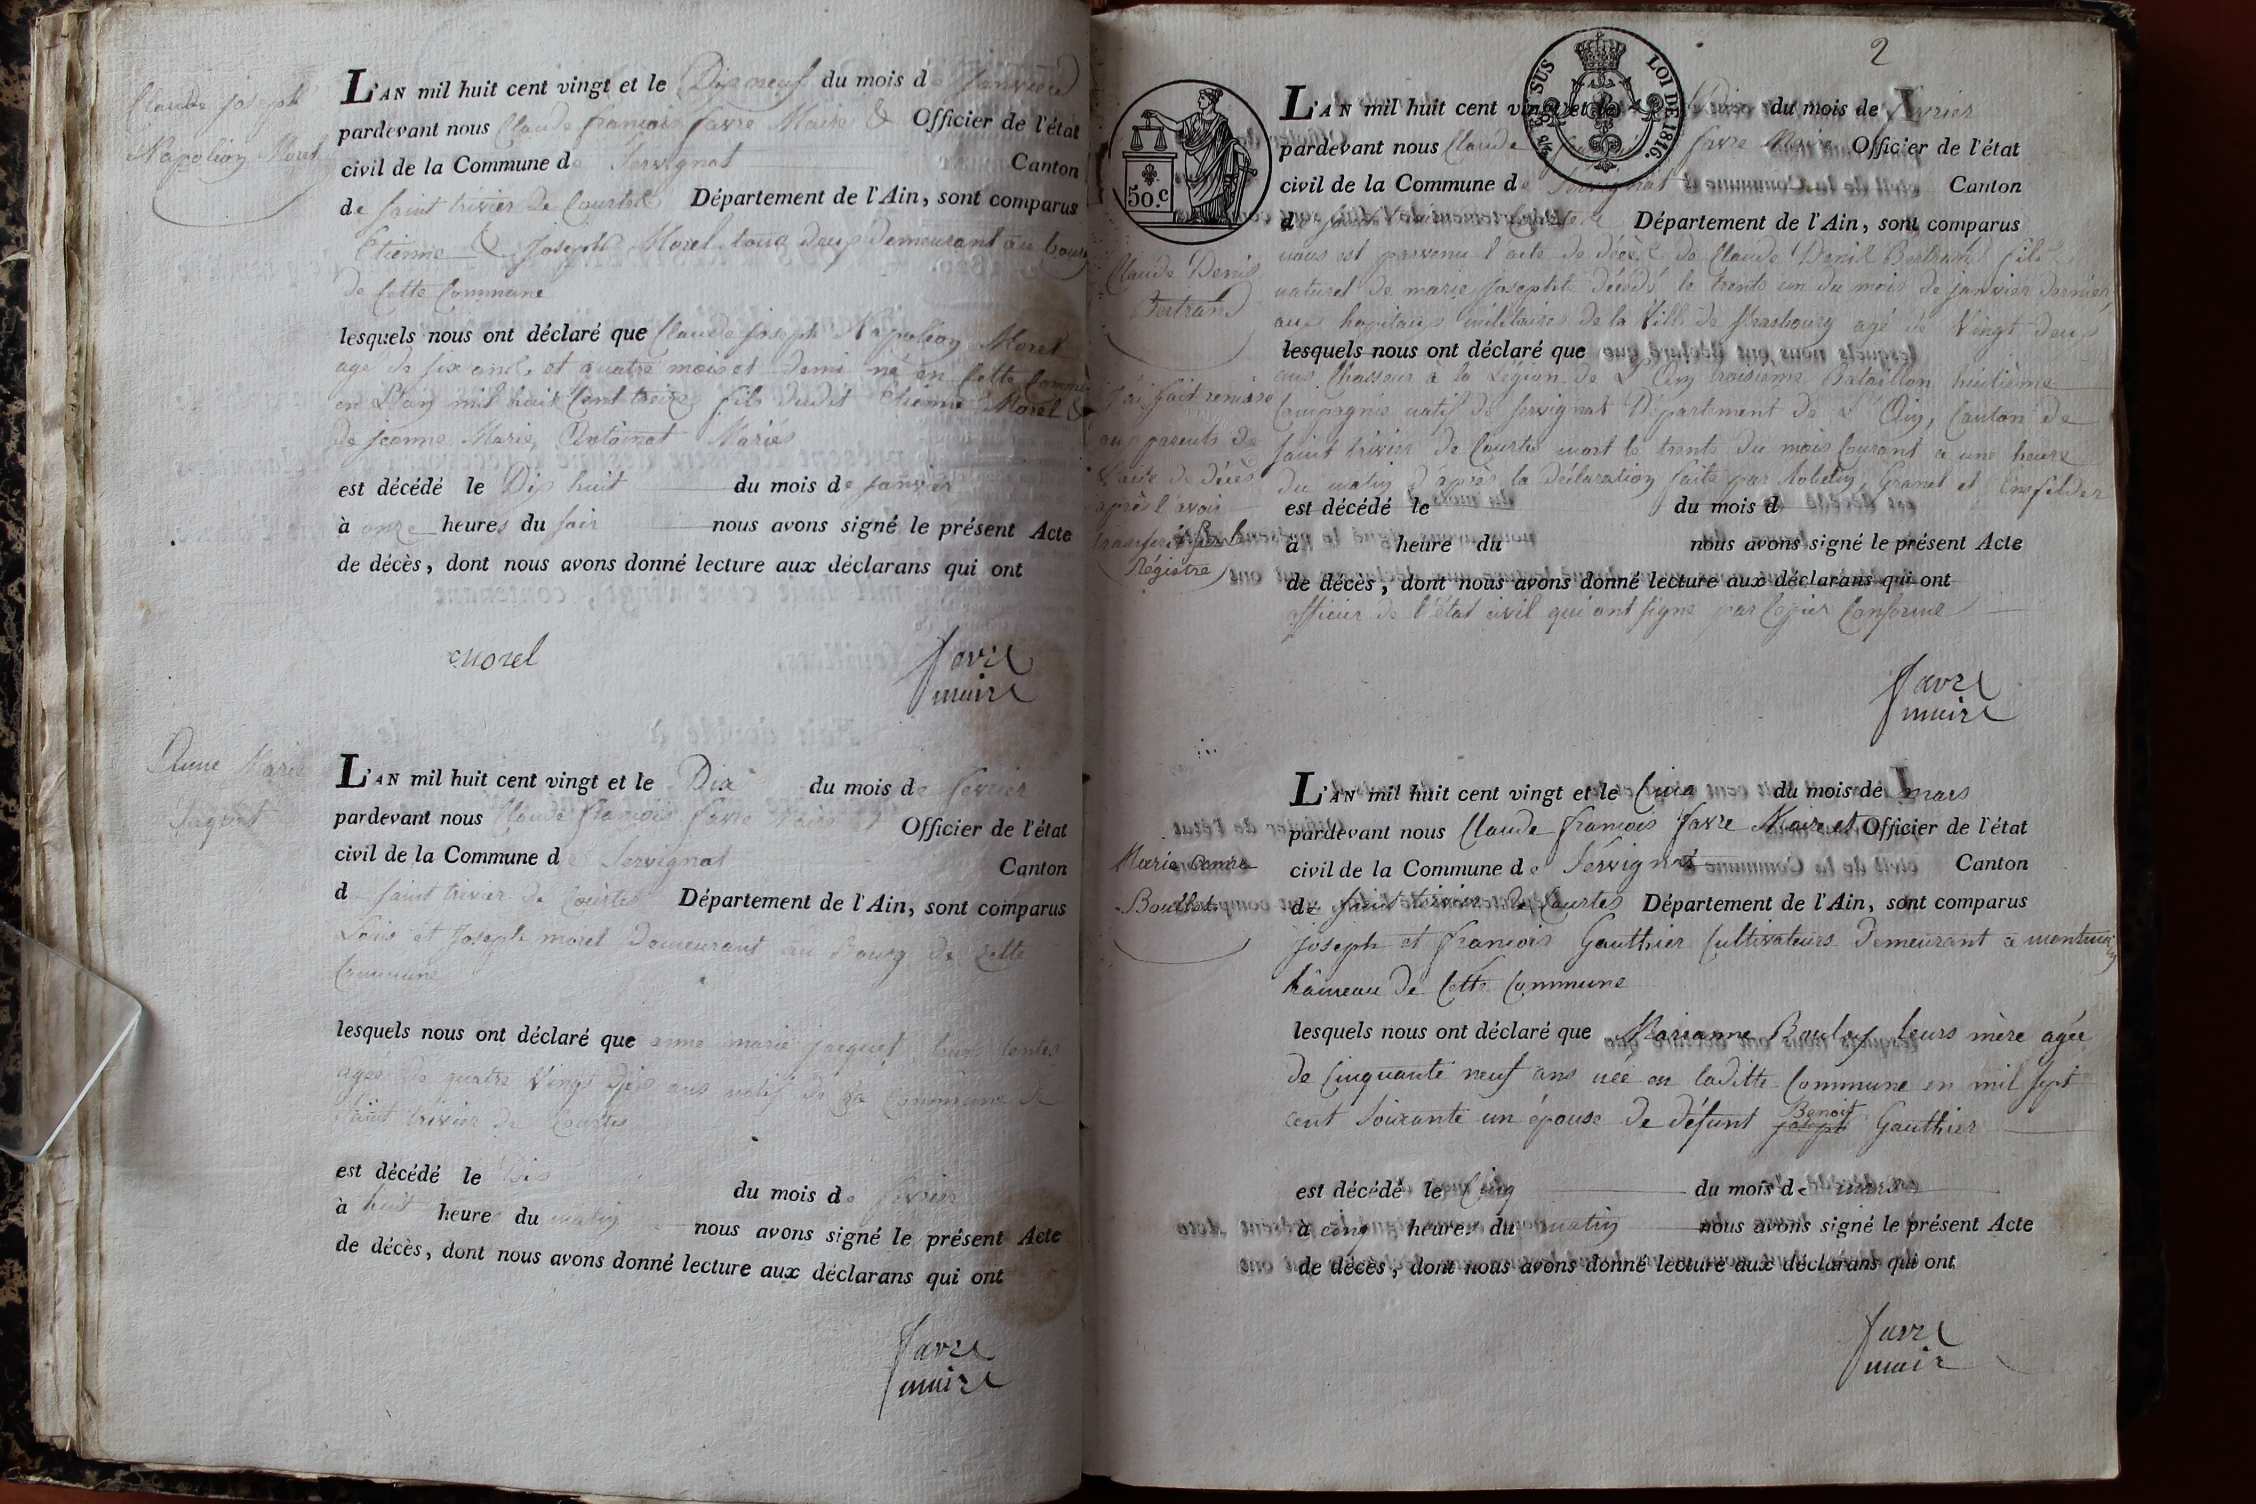 Claude Joseph
Napoléon Morel
L'AN mil huit cent vingt et le Dix neuf du mois de Janvier
pardevant nous Claude françois favre Maire & Officier de l'état
civil de la Commune de Servignat Canton
de Saint trivier De Courtes Département de l'Ain, sont comparus
Etienne & Joseph Morel tous deux demeurant au bourg
de Cette Commune
lesquels nous ont déclaré que Claude joseph Napoléon Morel
age de six ans et quatre mois et demi né en Cette Commune
en L'an mil huit Cent treize fils dudit Etienne Morel &
de jeanne Marie Mariés
est décédé le Dix huit du mois de janvier
à onze heures du soir nous avons signé le présent Acte
de décès, dont nous avons donné lecture aux déclarans qui ont
Morel
favre
maire
Anne Marie
Jaquet
L'AN mil huit cent vingt et le Dix du mois de fevrier
pardevant nous Claude françois favre Maire & Officier de l'état
civil de la Commune de Servignat Canton
d Saint trivier de Courtes Département de l'Ain, sont comparus
et Joseph morel Demeurant au Bourg De Cette
Commune
lesquels nous ont déclaré que anne marie jacquet leurs tantes
agée de quatre Vingt ans natif de la Commune de
Saint trivier de Courtes
est décédé le du mois de fevrier
à huit heures du matin nous avons signé le présent Acte
de décès, dont nous avons donné lecture aux déclarans qui ont
favre
maire
2
EN SUS
LOI DE 1816.
50.c
Claude Denis
Bertrand
L'AN mil huit cent vingt et le du mois de fevrier
pardevant nous Claude favre Maire Officier de l'état
civil de la Commune de Servignat Canton
d Département de l'Ain, sont comparus
nous est parvenu l'acte de décès de Claude Denis Bertrand fils
naturel de marie Josephte décédé le trente un du mois de janvier dernier
aux hopitaux militaires de la Ville de Strasbourg agé de Vingt deux
lesquels nous ont déclaré que
ans Chasseur à la Légion de L'Ain troisième Bataillon huitième
Compagnie natif de Servignat Département de L'Ain, Canton de
Saint trivier de Courtes mort le trente du mois Courant a une heure
du matin d'après la déclaration faite par Granel et
est décédé le du mois d
à heure du nous avons signé le présent Acte
de décès, dont nous avons donné lecture aux déclarans qui ont
officier de l'état civil qui ont signé par Copier Conforme
J'ai fait remise
aux parents de
L'acte de décès
après l'avoir
transferé sur le
Régistre
favre
maire
Marie anne
L'AN mil huit cent vingt et le Cinq du mois de mars
pardevant nous Claude francois favre Maire et Officier de l'état
civil de la Commune de Servignat Canton
de Saint trivier de Courtes Département de l'Ain, sont comparus
joseph et francois Gauthier Cultivateurs Demeurant a
hâmeau de Cette Commune
lesquels nous ont déclaré que Marianne leurs mère agée
de Cinquante neuf ans née en laditte Commune en mil sept
cent Soixante un épouse de défunt Benoit joseph Gauthier
est décédé le Cinq du mois de mars
à cinq heures du matin nous avons signé le présent Acte
de décès, dont nous avons donné lecture aux déclarans qui ont
favre
maire